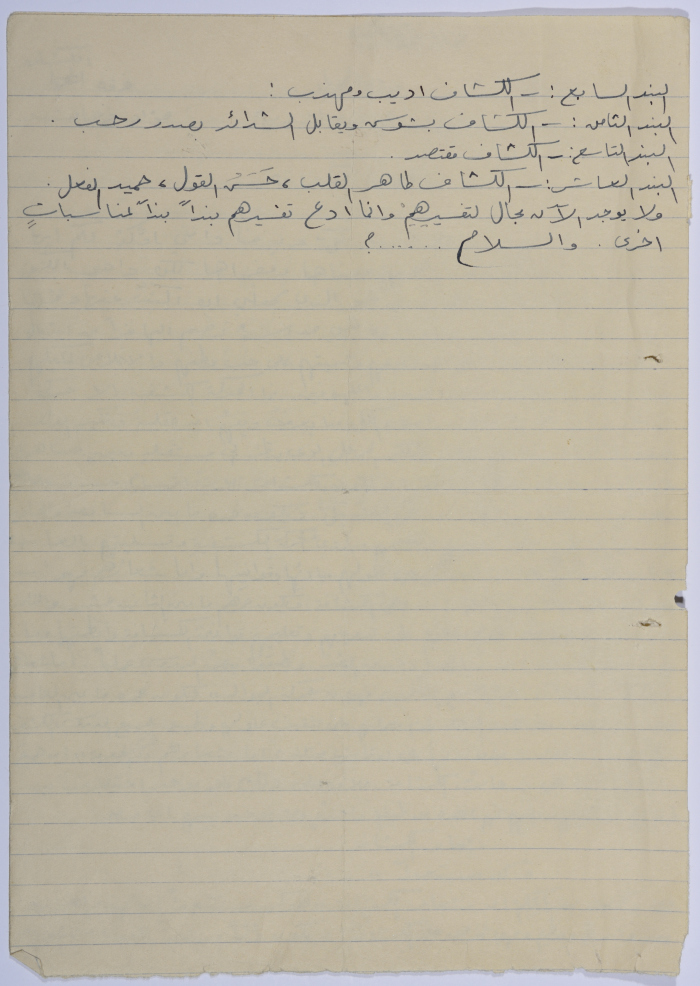 البند السابع :ـ الكشاف اديب ومهذب :
البند الثامن :ـ الكشاف بشوس ويقابل الشدائد بصدر رحب .
البند التاسع :ـ الكشاف مقتصد .
البند العاشر :ـ الكشاف طاهر القلب ، حَسَن القول ، حميد الفعل .
ولا يوجد الآن مجال لتفسيرهم وانما ادع تفسيرهم بنداً بنداً لمناسباتٍ
اخرى . والسلام ......؟